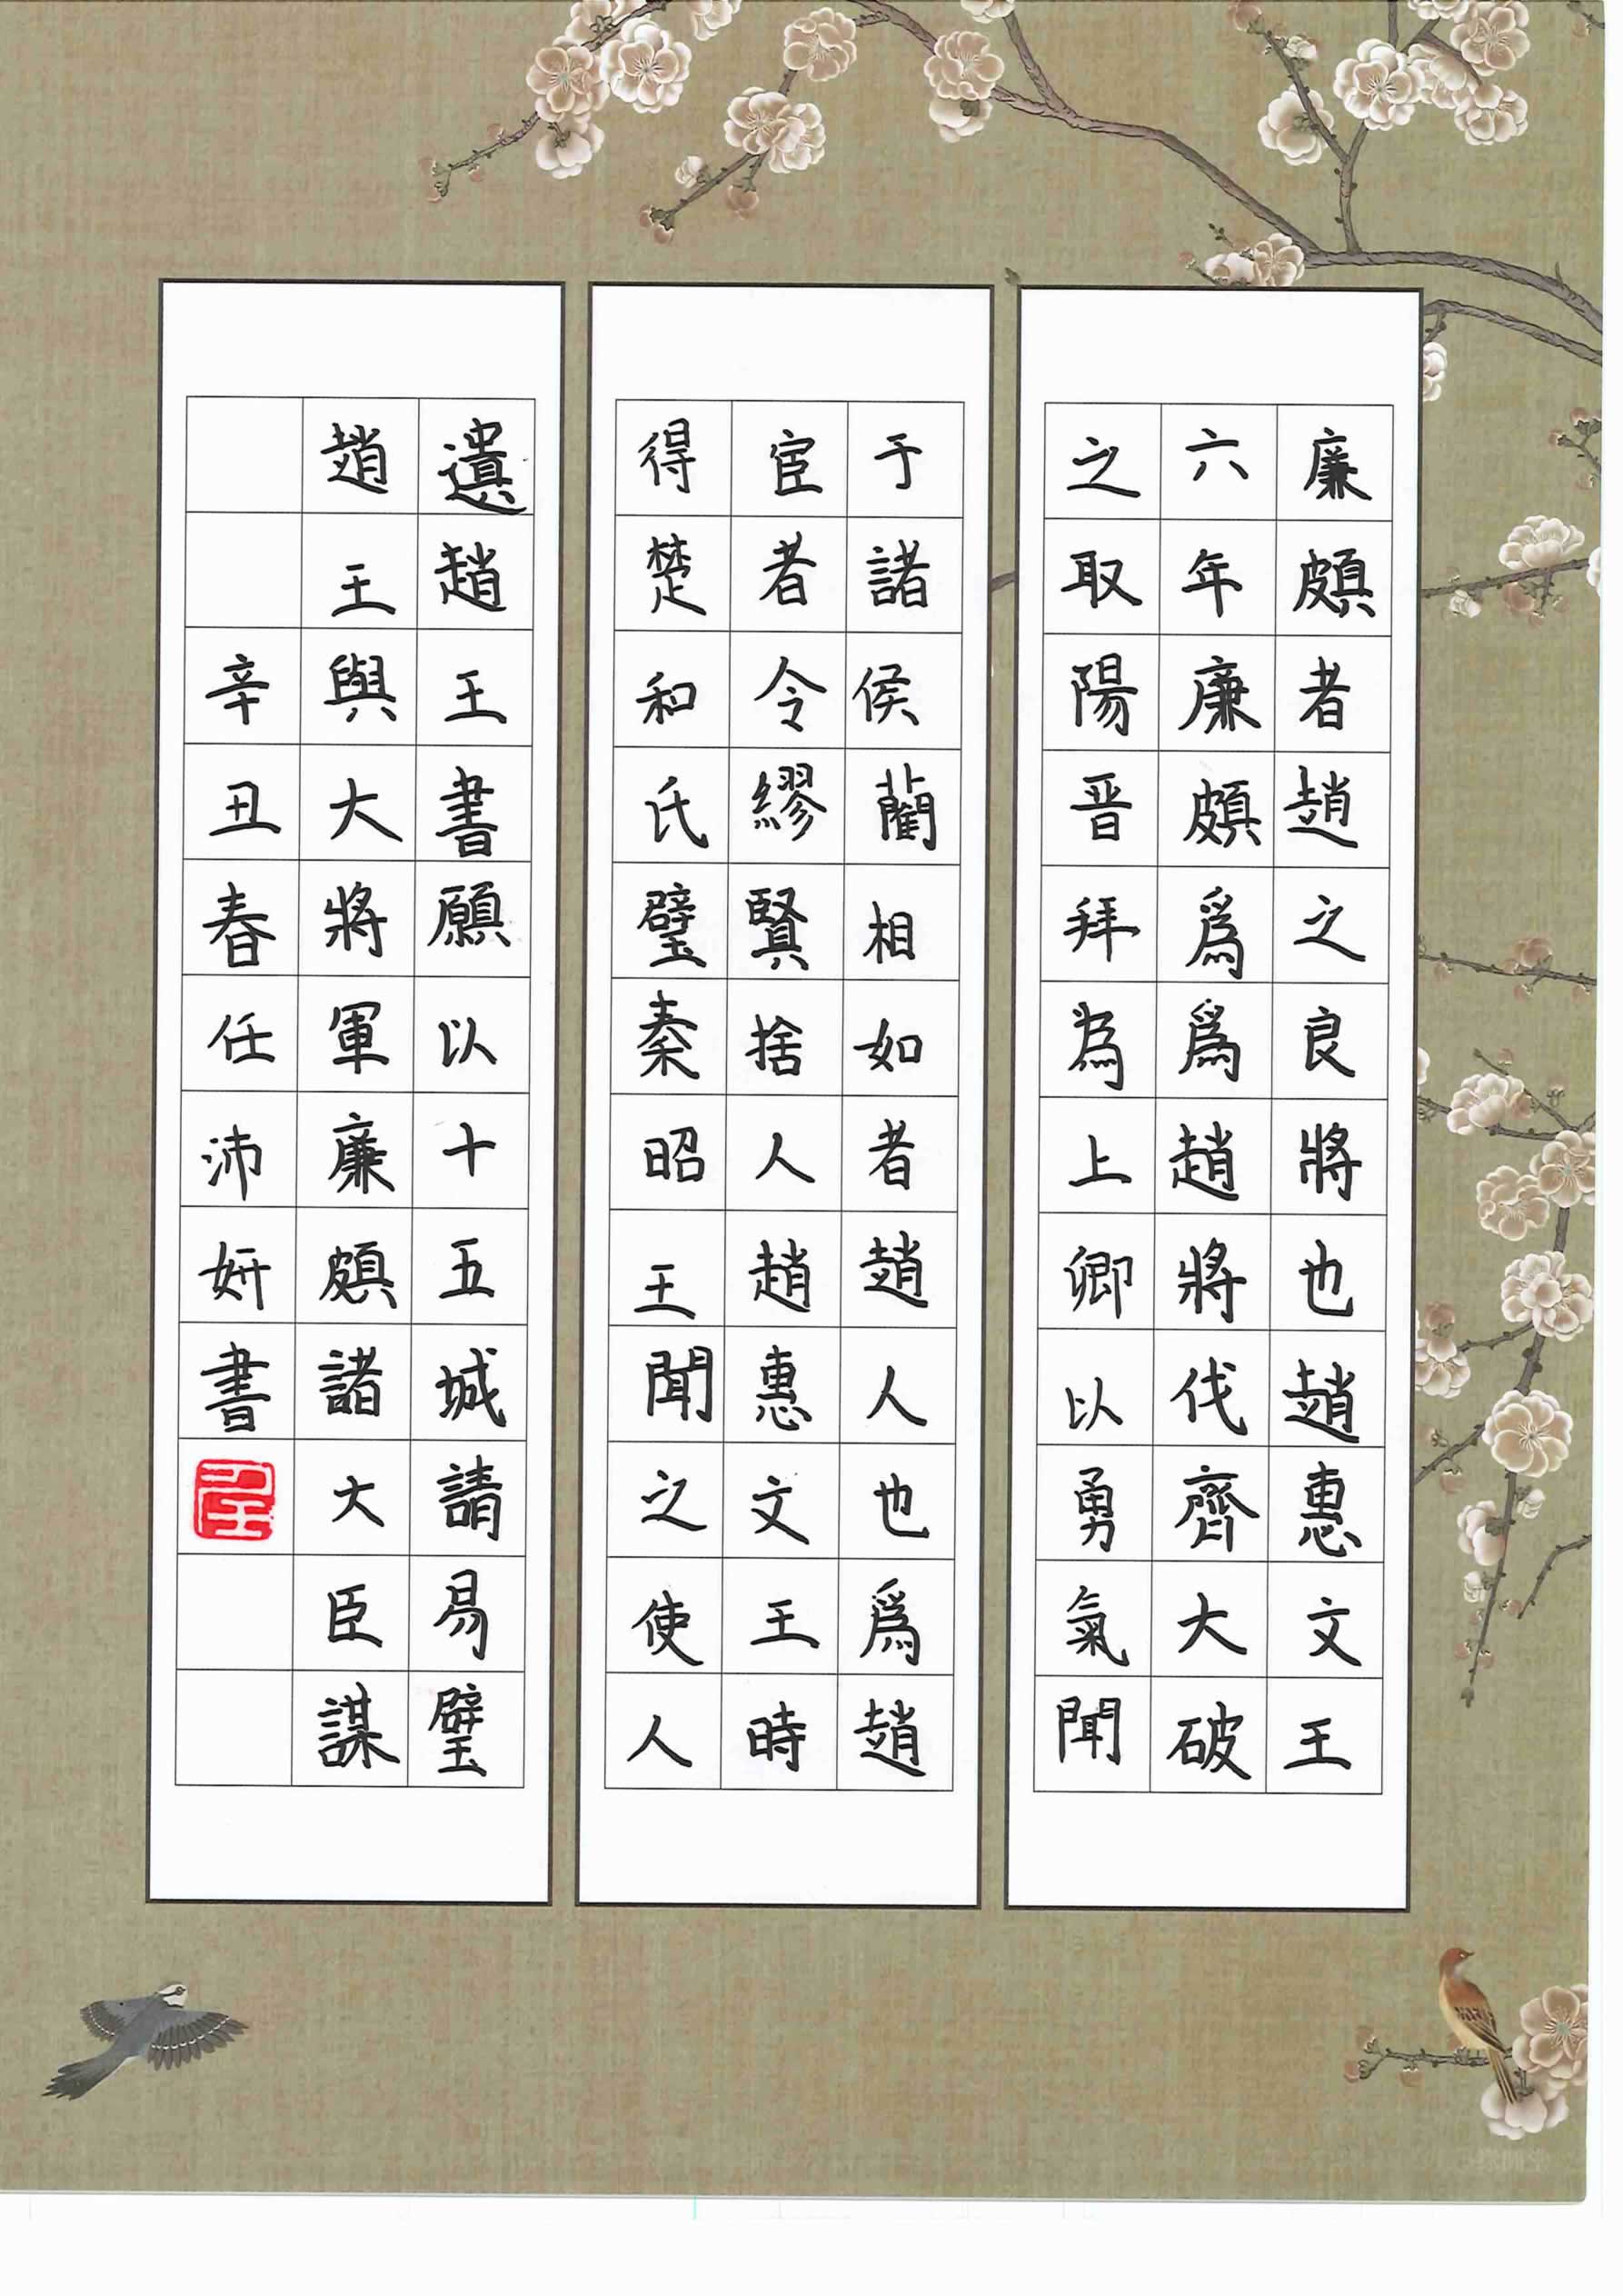 廉頗者趙之良將也趙惠文王
六年廉頗爲爲趙將伐齊大破
之取陽晋拜為上卿以勇氣聞
于諸侯藺相如者趙人也爲趙
宦者令繆賢捨人趙惠文王時
得楚和氏璧秦昭王聞之使人
遺趙王書願以十五城請易璧
趙王與大將軍廉頗諸大臣謀
辛丑春任沛妍書